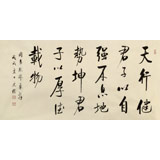 天行健
君子以自
強不息地
勢坤君
子以厚德
載物